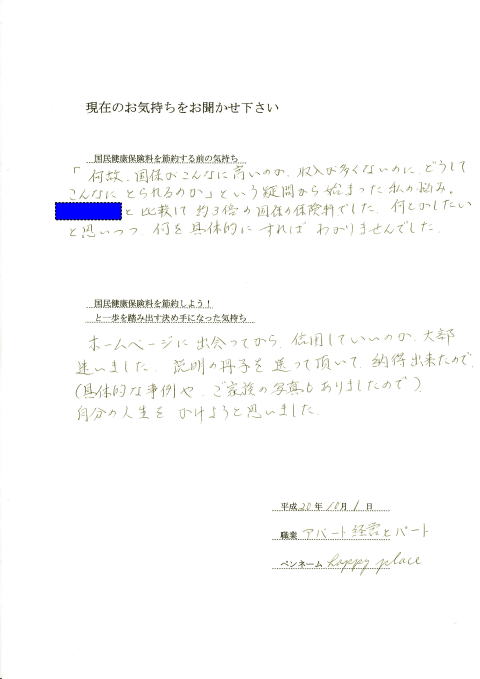 現在のお気持ちをお聞かせ下さい
国民健康保険料を節約する前の気持ち
「何故、国保がこんなに高いのか、収入が多くないのに、どうして
こんなにとられるのか」という疑問から始まった私の悩み。
と比較して約3倍の国保の保険料でした。何とかしたい
と思いつつ、何を具体的にすればわかりませんでした。
国民健康保険料を節約しよう！
と一歩を踏み出す決め手になった気持ち
ホームページに出会ってから、信用していいのか、大部
迷いました。説明の冊子を送って頂いて、納得出来たので、
(具体的な事例や、ご家族の写真もありましたので)
自分の人生をかけようと思いました。
平成20年10月1日
職業 アパート経営とパート
ペンネーム happy place